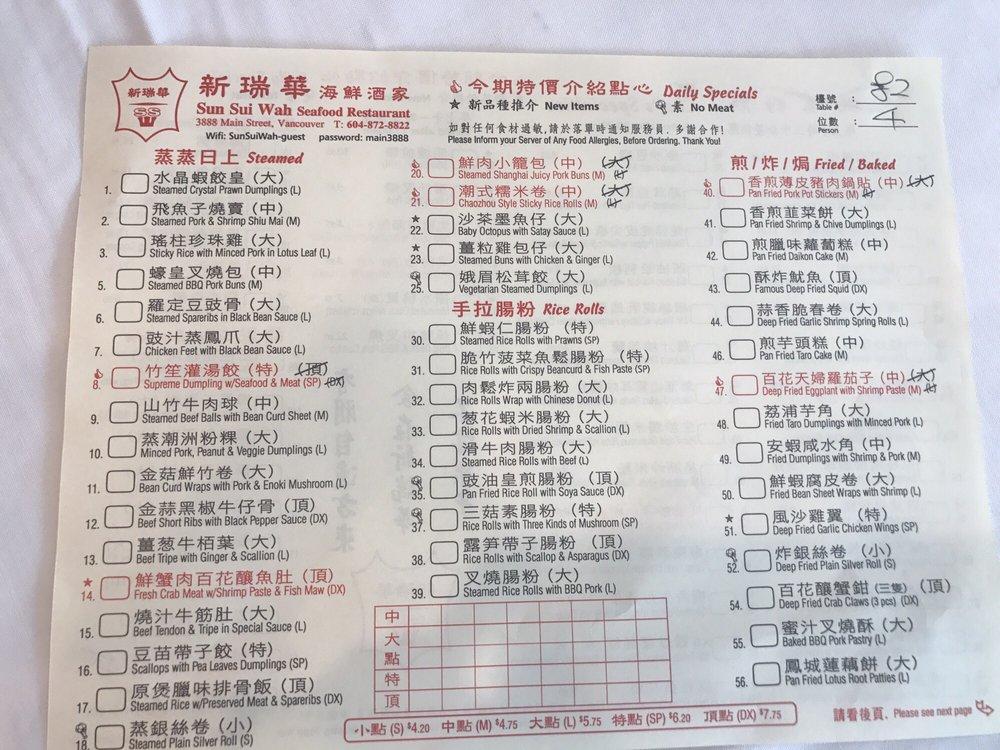 新瑞華
SS
W
新瑞華 海鮮酒家
Sun Sui Wah Seafood Restaurant
3888 Main Street, Vancouver T: 604-872-8822
Wifi: SunSuiWah-guest password: main3888
今期特價介紹點心 Daily Specials
★ 新品種推介 New Items 素 No Meat
如對任何食材過敏,請於落單時通知服務員, 多謝合作!
Please Inform your Server of Any Food Allergies, Before Ordering. Thank You!
檯號 Table # : 82
位數 Person : 4
蒸蒸日上 Steamed
1. 水晶蝦餃皇(大)
Steamed Crystal Prawn Dumplings (L)
2. 飛魚子燒賣(中)
Steamed Pork & Shrimp Shiu Mai (M)
3. 瑤柱珍珠雞(大)
Sticky Rice with Minced Pork in Lotus Leaf (L)
5. 蠔皇叉燒包(中)
Steamed BBQ Pork Buns (M)
6. 羅定豆豉骨(大)
Steamed Spareribs in Black Bean Sauce (L)
7. 豉汁蒸鳳爪(大)
Chicken Feet with Black Bean Sauce (L)
8. 竹笙灌湯餃(特)(頂)
Supreme Dumpling w/Seafood & Meat (SP) (DX)
9. 山竹牛肉球(中)
Steamed Beef Balls with Bean Curd Sheet (M)
10. 蒸潮洲粉粿(大)
Minced Pork, Peanut & Veggie Dumplings (L)
11. 金菇鮮竹卷(大)
Bean Curd Wraps with Pork & Enoki Mushroom (L)
12. 金蒜黑椒牛仔骨(頂)
Beef Short Ribs with Black Pepper Sauce (DX)
13. 薑葱牛栢葉(大)
Beef Tripe with Ginger & Scallion (L)
★ 14. 鮮蟹肉百花釀魚肚(頂)
Fresh Crab Meat w/Shrimp Paste & Fish Maw (DX)
15. 燒汁牛筋肚(大)
Beef Tendon & Tripe in Special Sauce (L)
16. 豆苗帶子餃(特)
Scallops with Pea Leaves Dumplings (SP)
17. 原煲臘味排骨飯(頂)
Steamed Rice w/Preserved Meat & Spareribs (DX)
18. 蒸銀絲卷(小)
Steamed Plain Silver Roll (S)
20. 鮮肉小籠包(中)(大)
Steamed Shanghai Juicy Pork Buns (M)
21. 潮式糯米卷(中)(大)
Chaozhou Style Sticky Rice Rolls (M)
★ 22. 沙茶墨魚仔(大)
Baby Octopus with Satay Sauce (L)
★ 23. 薑粒雞包仔(大)
Steamed Buns with Chicken & Ginger (L)
25. 娥眉松茸餃(大)
Vegetarian Steamed Dumplings (L)
手拉腸粉 Rice Rolls
30. 鮮蝦仁腸粉(特)
Steamed Rice Rolls with Prawns (SP)
31. 脆竹菠菜魚鬆腸粉(特)
Rice Rolls with Crispy Beancurd & Fish Paste (SP)
32. 肉鬆炸兩腸粉(大)
Rice Rolls Wrap with Chinese Donut (L)
33. 葱花蝦米腸粉(大)
Rice Rolls with Dried Shrimp & Scallion (L)
34. 滑牛肉腸粉(大)
Steamed Rice Rolls with Beef (L)
35. 豉油皇煎腸粉(頂)
Pan Fried Rice Roll with Soya Sauce (DX)
37. 三菇素腸粉(特)
Rice Rolls with Three Kinds of Mushroom (SP)
38. 露笋帶子腸粉(頂)
Rice Rolls with Scallop & Asparagus (DX)
39. 叉燒腸粉(大)
Steamed Rice Rolls with BBQ Pork (L)
中
大
點
特
頂
煎/炸/焗 Fried / Baked
40. 香煎薄皮豬肉鍋貼(中)(大)
Pan Fried Pork Pot Stickers (M)
41. 香煎韮菜餅(大)
Pan Fried Shrimp & Chive Dumplings (L)
42. 煎臘味蘿蔔糕(中)
Pan Fried Daikon Cake (M)
43. 酥炸魷魚(頂)
Famous Deep Fried Squid (DX)
44. 蒜香脆春卷(大)
Deep Fried Garlic Shrimp Spring Rolls (L)
46. 煎芋頭糕(中)
Pan Fried Taro Cake (M)
47. 百花天婦羅茄子(中)(大)
Deep Fried Eggplant with Shrimp Paste (M)
48. 荔浦芋角(大)
Fried Taro Dumplings with Minced Pork (L)
49. 安蝦咸水角(中)
Fried Dumplings with Shrimp & Pork (M)
50. 鮮蝦腐皮卷(大)
Fried Bean Sheet Wraps with Shrimp (L)
★ 51. 風沙雞翼(特)
Deep Fried Garlic Chicken Wings (SP)
52. 炸銀絲卷(小)
Deep Fried Plain Silver Roll (S)
54. 百花釀蟹鉗(三隻)(頂)
Deep Fried Crab Claws (3 pcs) (DX)
55. 蜜汁叉燒酥(大)
Baked BBQ Pork Pastry (L)
56. 鳳城蓮藕餅(大)
Pan Fried Lotus Root Patties (L)
小點 (S) $4.20 中點 (M) $4.75 大點 (L) $5.75 特點 (SP) $6.20 頂點 (DX) $7.75
請看後頁. Please see next page